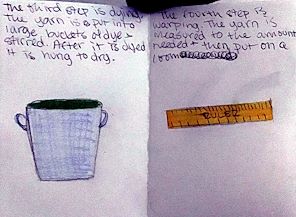 The third step is dying.
The yarn is put into
large buckets of dye &
stirred. After it is dyed
it is hung to dry.
The fourth step is
warping. The yarn is
measured to the amount
needed & then put on a
loom
RULER